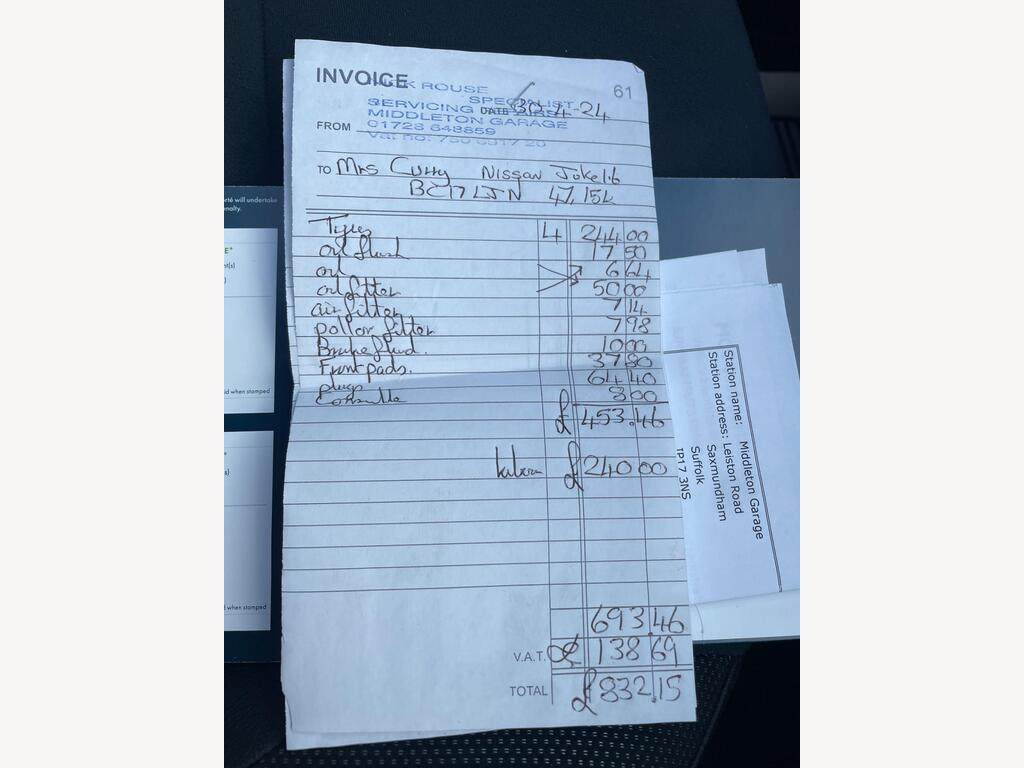 INVOICE
61
NICK ROUSE
SPECIALIST
SERVICING DATE 30-4-24
MIDDLETON GARAGE
FROM 01728 648859
TO Mrs Curry Nissan Juke 1.6
BC17LJN 47,15k
Tyres 4 244 00
oil flush 17 50
oil 6 64
oil filter 50 00
air filter 7 14
pollon filter 7 98
Brake fluid. 10 00
Front pads. 37 80
plugs 64 40
8 00
£ 453.46
labour £ 240 00
693.46
V.A.T. £ 138 69
TOTAL £ 832.15
Station name: Middleton Garage
Station address: Leiston Road
Saxmundham
Suffolk
IP17 3NS
orté will undertake
nalty.
E*
nt(s)
)
id when stamped
*
s)
)
d when stamped